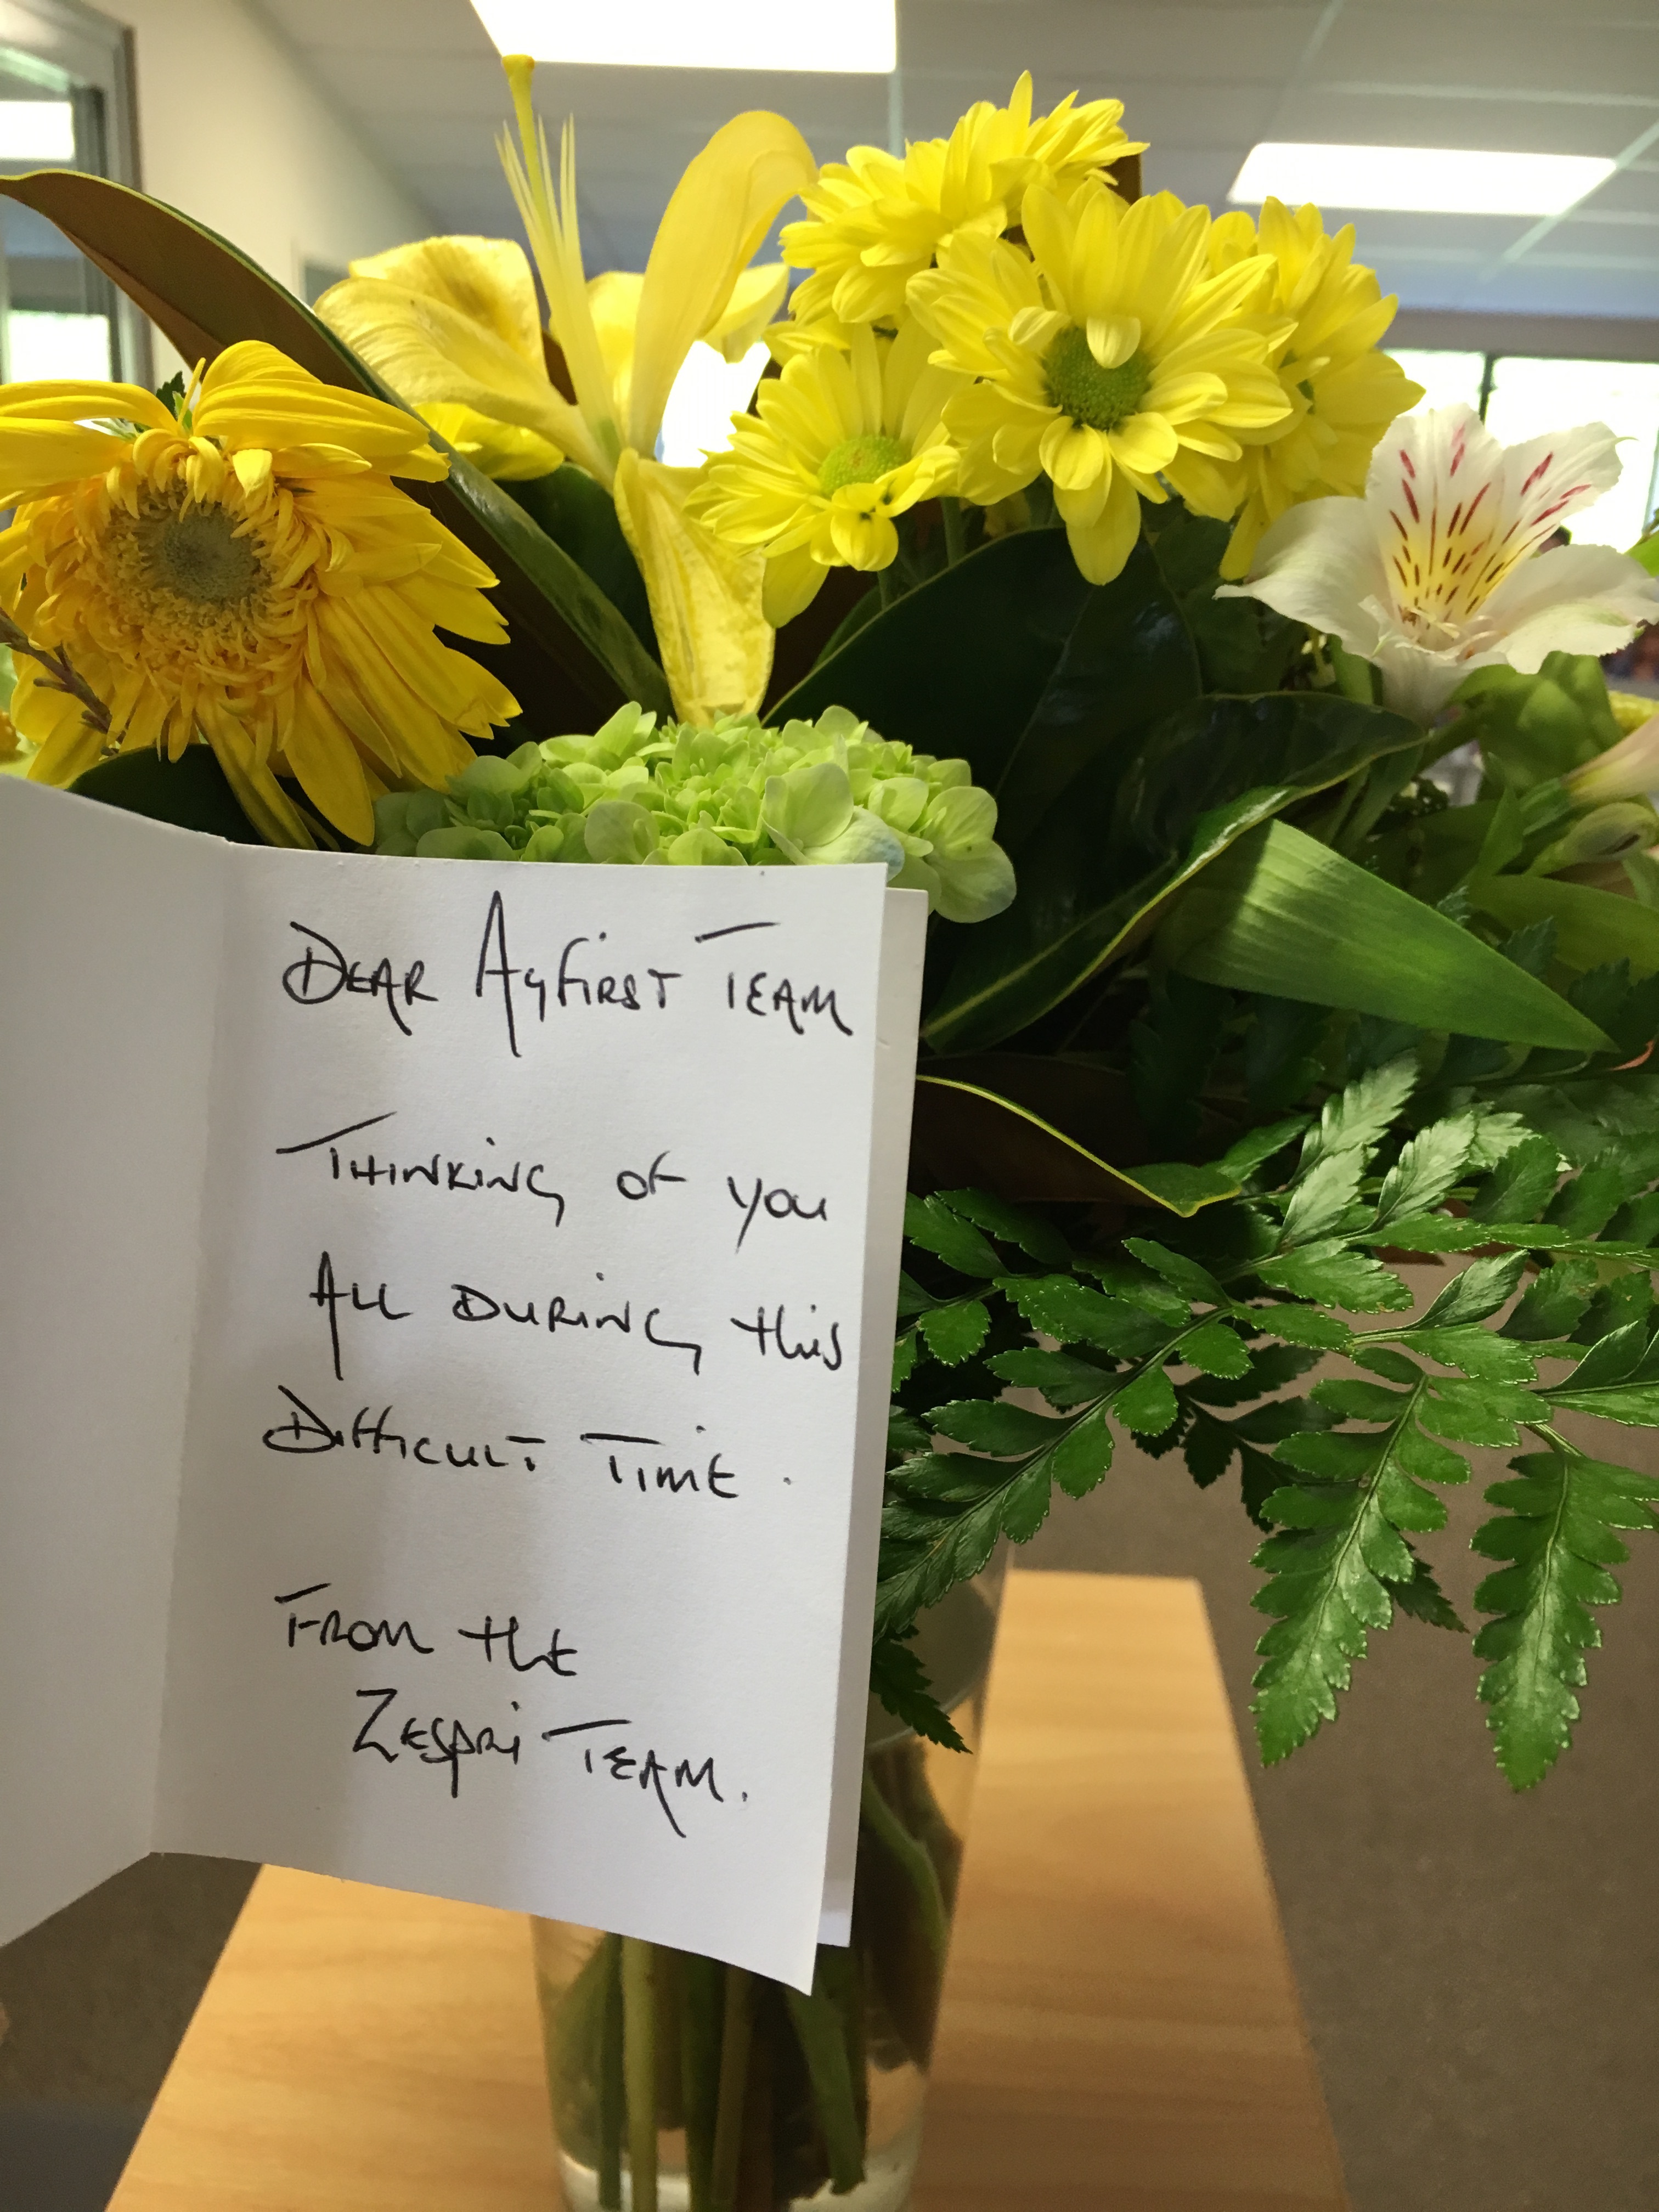 DEAR AgFIRST TEAM
THINKING OF YOU
ALL DURING this
DIFFICULT TIME.
FROM the
ZESPRi TEAM.